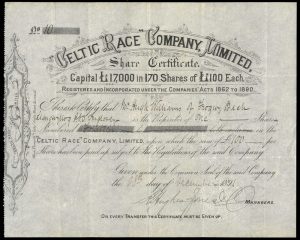 No 10
"CELTIC RACE" COMPANY, LIMITED.
Share Certificate.
Capital £17000 in 170 Shares of £100 Each.
REGISTERED AND INCORPORATED UNDER THE COMPANIES ACTS 1862 TO 1890.
This is to Certify that Mr Hugh Williams of
is the Proprietor of One Share
Numbered
"CELTIC RACE" COMPANY, LIMITED, upon which the sum of £100 per
Share has been paid up subject to the Regulations of the said Company
Given under the Common Seal of the said Company
the day of 1891
MANAGERS.
ON EVERY TRANSFER THIS CERTIFICATE MUST BE GIVEN UP.